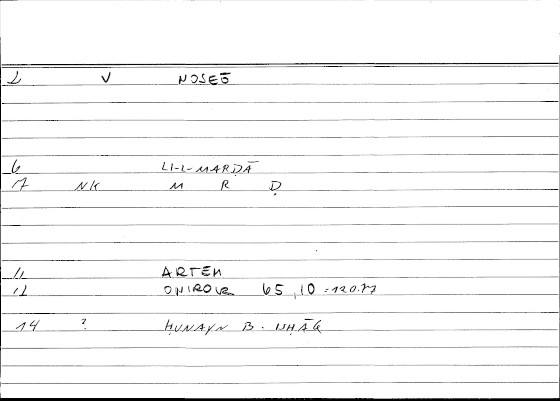 2 V NOSEŌ
6 LI-L-MARḌĀ
7 NK M R Ḍ
11 ARTEM
12 ONIROCR 65,10 = 120.77
14 ? ḤUNAYN B. ISḤĀQ